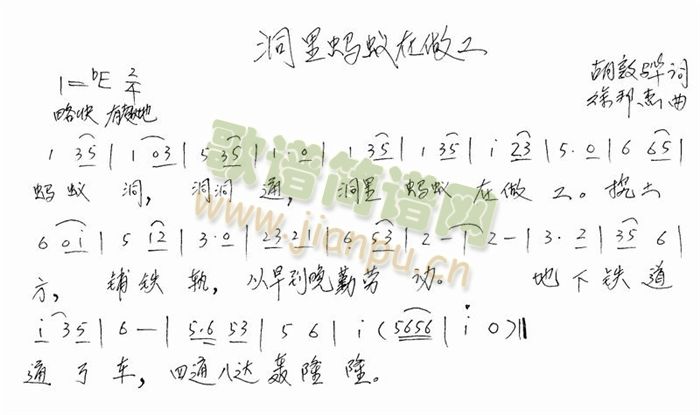 洞里蚂蚁在做工
1=ᵇE 2/4
胡敦骅词
略快 有趣地
徐邦杰曲
1 35 | 1 03 | 5 35 | 1·0 | 1 35 | 1 35 | i 23 | 5·0 | 6 65 |
蚂蚁 洞, 洞洞 通, 洞里 蚂蚁 在 做 工。挖土
6 0i | 5 i2 | 3·0 | 23 21 | 6 53 | 2 - | 2 - | 3·2 | 35 6 |
方, 铺铁 轨, 以早到晚勤劳 动。 地下铁道
i 35 | 6 - | 5·6 53 | 5 6 | i (5656 | i 0) ‖
通了车, 四通八达轰隆隆。
歌谱简谱网
www.jianpu.cn